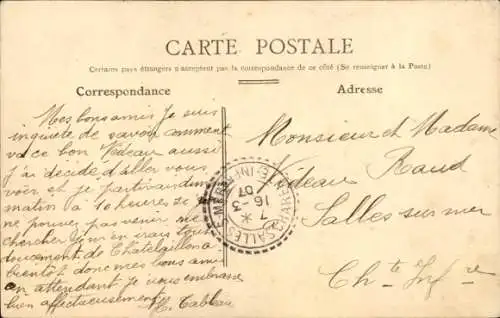 CARTE POSTALE
Certains pays étrangers n'acceptent pas la correspondance de ce côté (Se renseigner à la Poste)
Correspondance
Adresse
Mes bons amis Je suis
inquiete de savoir comment
va ce bon Videau aussi
j'ai décidé d'aller vous
voir et je partirai dim
matin a 10 heures si
ne pouvez pas venir me
chercher j'en irais tout
doucement de Chatelaillon a
bientôt donc mes bons amis
en attendant je vous embrasse
bien affectueusement
Monsieur et Madame
Videau Raud
Salles sur mer
Chte Infre
SALLES S MER
CHARTE INFRE
7 - 3
16
07